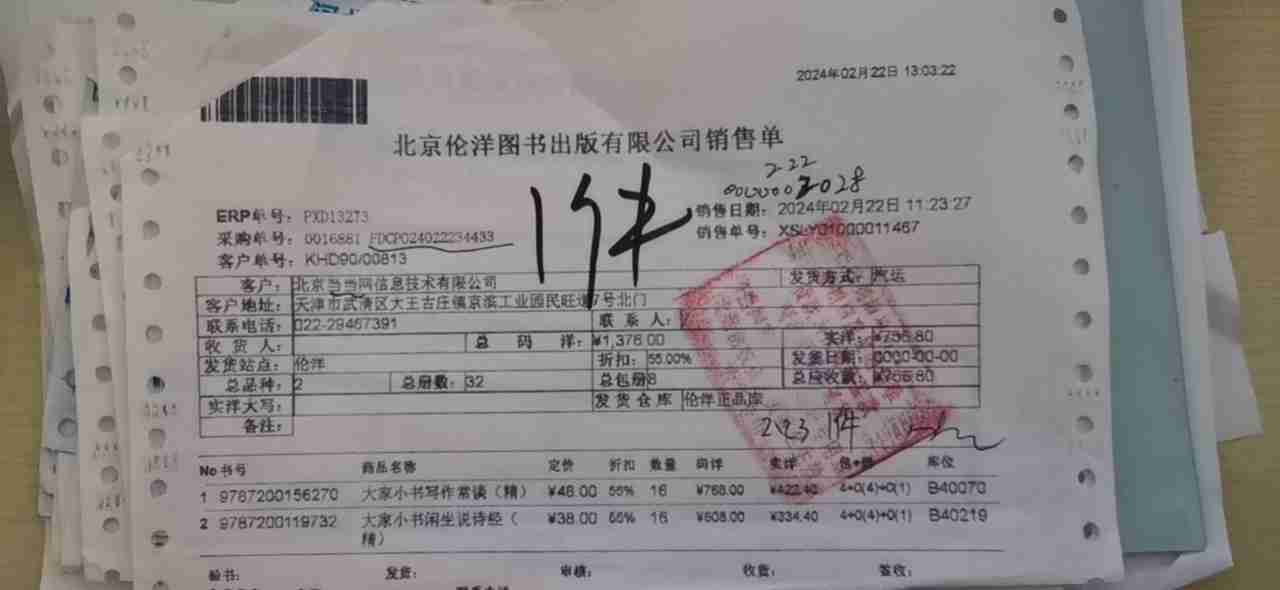 2024年02月22日 13:03:22
北京伦洋图书出版有限公司销售单
2-22
1件
ERP单号: PXD13273
销售日期: 2024年02月22日 11:23:27
采购单号: 0016881 FDCP024022234433
销售单号: XSLY01000011467
客户单号: KHD90/00813
客户: 北京当当网信息技术有限公司 发货方式: 汽运
客户地址: 天津市武清区大王古庄镇京滨工业园民旺道7号北门
联系电话: 022-29467391 联系人:
收货人: 总码洋: ¥1,376.00 实洋: ¥756.80
发货站点: 伦洋 折扣: 55.00% 发签日期: 0000-00-00
总品种: 2 总册数: 32 总包册8 总应收款: ¥756.80
实洋大写: 发货仓库 伦洋正品库
备注:
2.23 1件
No 书号 商品名称 定价 折扣 数量 码洋 实洋 包+册 库位
1 9787200156270 大家小书写作常谈（精） ¥48.00 55% 16 ¥768.00 ¥422.40 4+0(4)+0(1) B40070
2 9787200119732 大家小书闲坐说诗经（ ¥38.00 55% 16 ¥608.00 ¥334.40 4+0(4)+0(1) B40219
精）
验书: 发货: 审核: 收货: 签收: